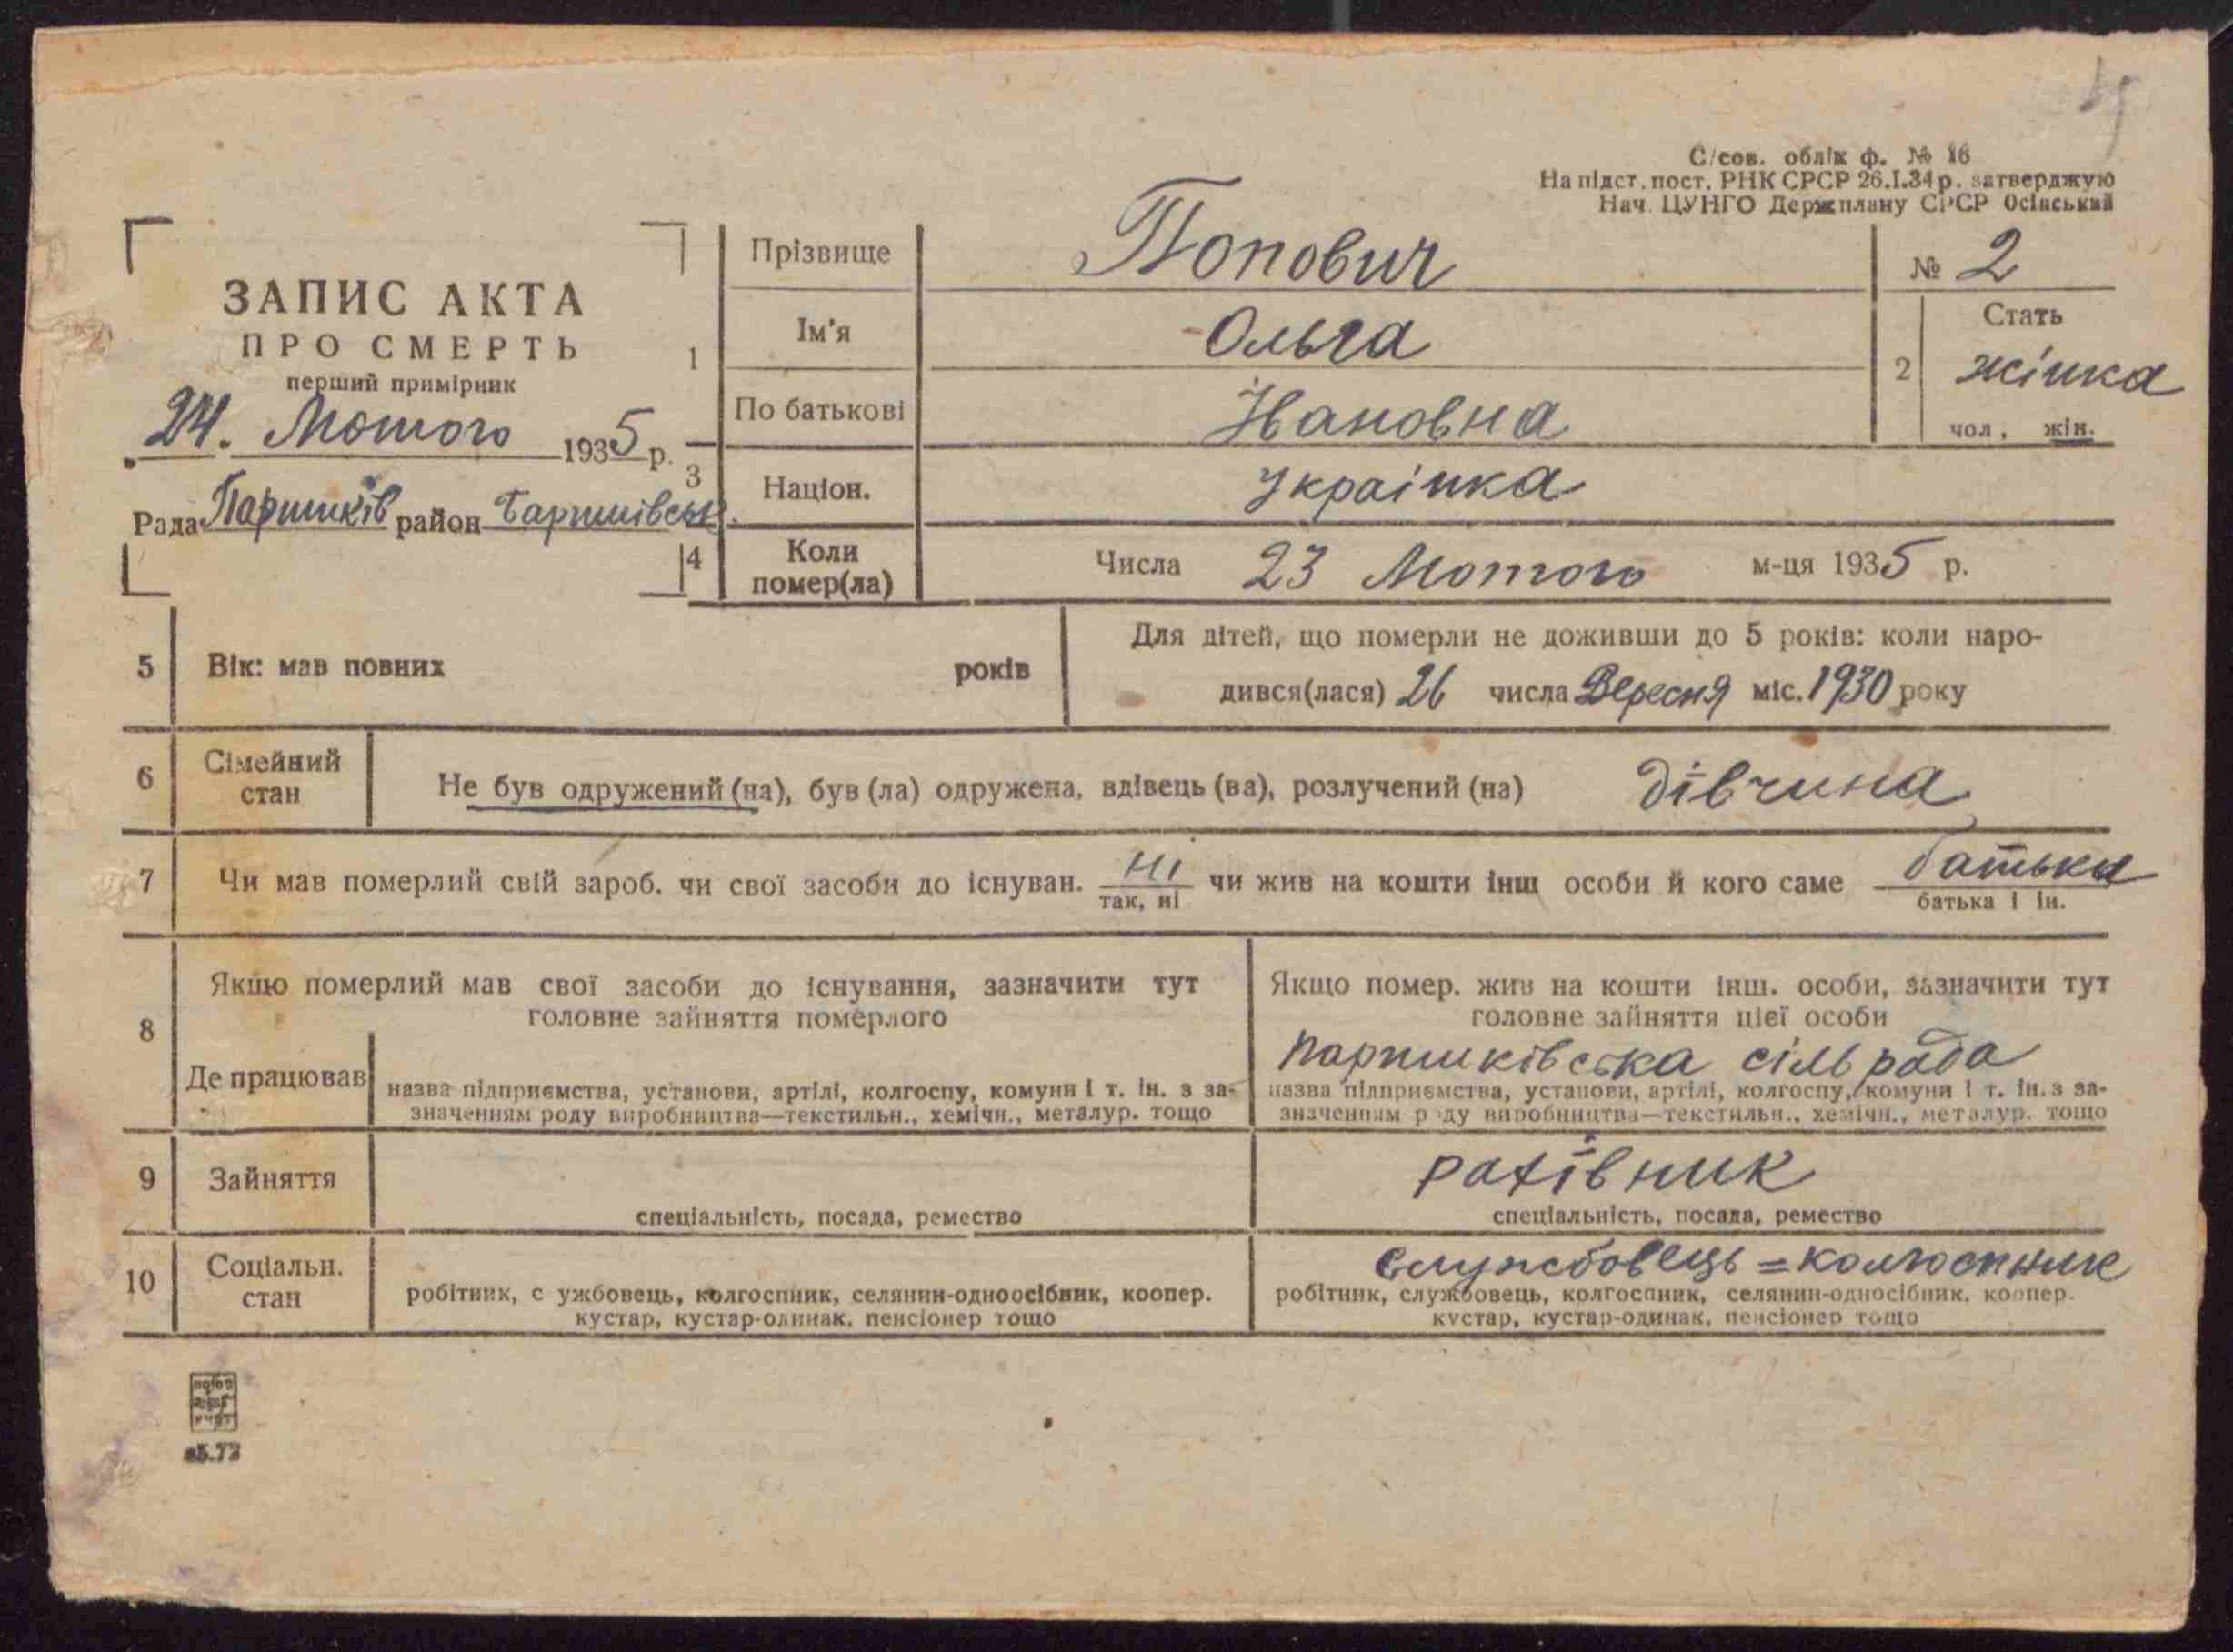 С/сов. облік ф. № 16
На підст. пост. РНК СРСР 26.I.34 р. затверджую
Нач. ЦУНГО Держплану СРСР Осінський
ЗАПИС АКТА
ПРО СМЕРТЬ
перший примірник
24. Лютого 1935 р.
Рада Паришків район Баришівськ.
1 Прізвище Попович
Ім'я Ольга
По батькові Івановна
№ 2
2 Стать
жінка
чол, жін.
3 Націон. Українка
4 Коли помер(ла) Числа 23 Лютого м-ця 1935 р.
5 Вік: мав повних років
Для дітей, що померли не доживши до 5 років: коли наро-
дився(лася) 26 числа Вересня міс. 1930 року
6 Сімейний стан Не був одружений (на), був (ла) одружена, вдівець (ва), розлучений (на) дівчина
7 Чи мав померлий свій зароб. чи свої засоби до існуван. ні чи жив на кошти інш особи й кого саме батька
так, ні батька і ін.
8 Якщо померлий мав свої засоби до існування, зазначити тут
головне зайняття померлого
Де працював
назва підприємства, установи, артілі, колгоспу, комуни і т. ін. з за-
значенням роду виробництва—текстильн., хемічн., металур. тощо
Якщо помер. жив на кошти інш. особи, зазначити тут
головне зайняття цієї особи
Паришківська сільрада
назва підприємства, установи, артілі, колгоспу, комуни і т. ін. з за-
значенням роду виробництва—текстильн., хемічн., металур. тощо
9 Зайняття
спеціальність, посада, ремество
рахівник
спеціальність, посада, ремество
10 Соціальн. стан
робітник, с ужбовець, колгоспник, селянин-одноосібник, коопер.
кустар, кустар-одинак, пенсіонер тощо
Службовець = колгоспник
робітник, службовець, колгоспник, селянин-односібник, коопер.
кустар, кустар-одинак, пенсіонер тощо